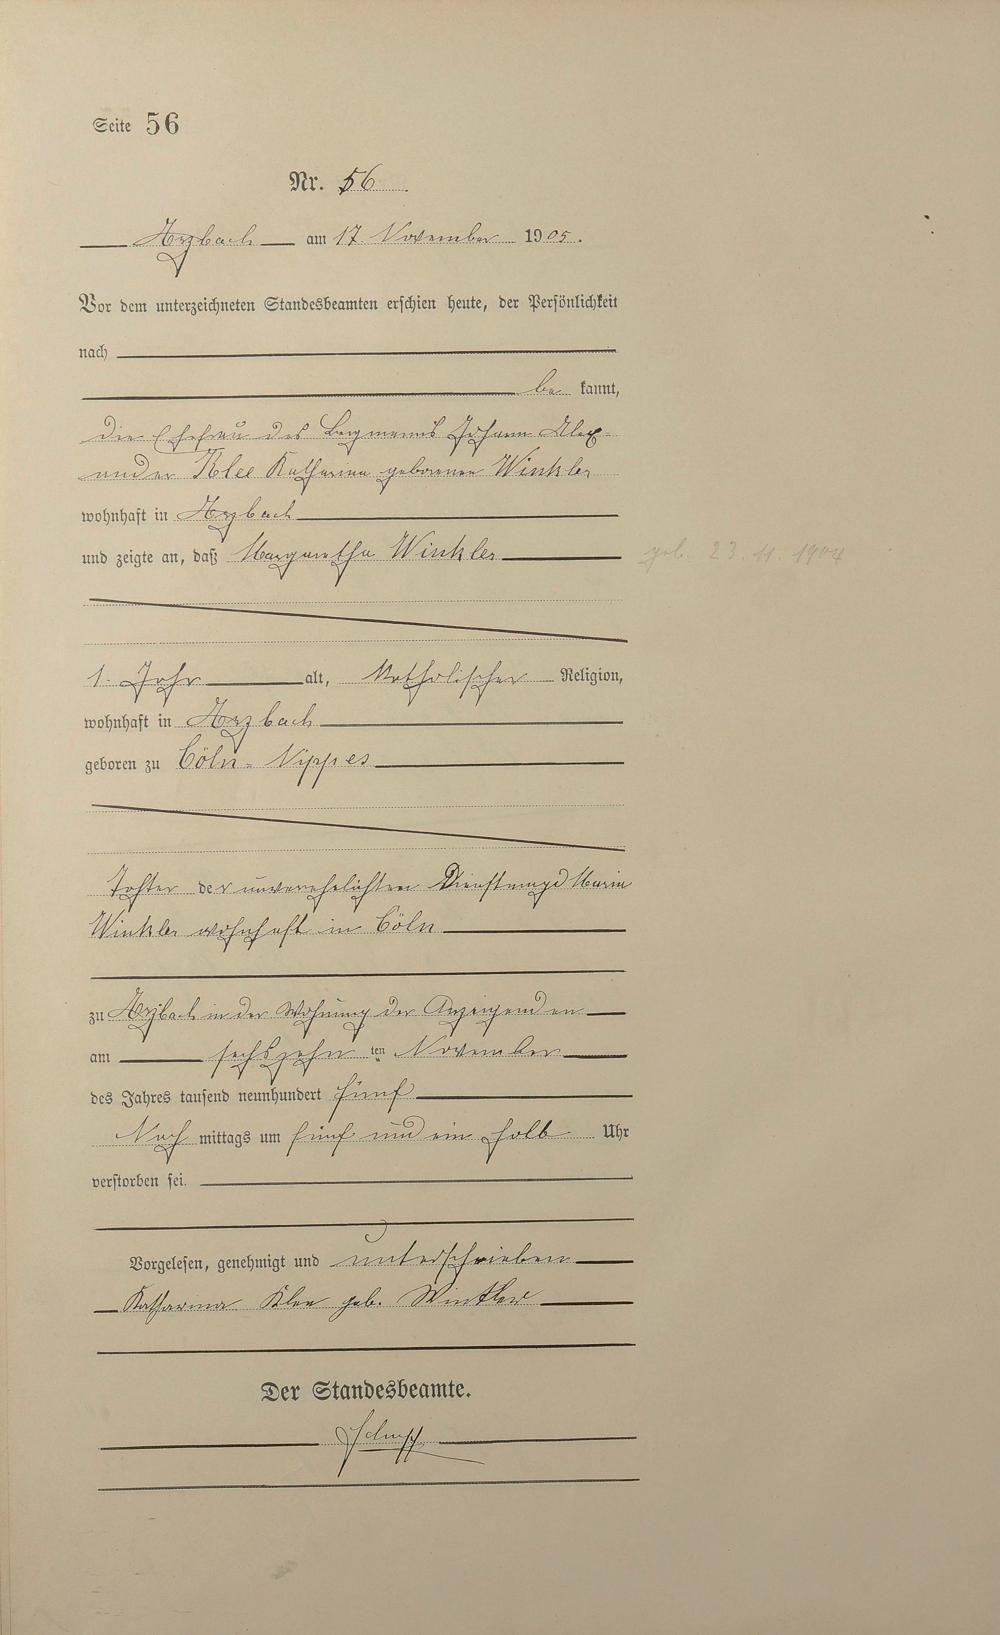 Seite 56
Nr. 56
Arzbach am 17. November 1905.
Vor dem unterzeichneten Standesbeamten erschien heute, der Persönlichkeit
nach
be kannt,
die Ehefrau des Bergmanns Johann Alex-
ander Klee Katharina geborenen Winkler
wohnhaft in Arzbach
und zeigte an, daß Margaretha Winkler
geb. 23. 11. 1904
1. Jahr alt, katholischer Religion,
wohnhaft in Arzbach
geboren zu Cöln-Nippes
Tochter der unverehelichten Dienstmagd Maria
Winkler wohnhaft in Cöln
zu Arzbach in der Wohnung der Anzeigenden
am sechszehn ten November
des Jahres tausend neunhundert fünf
Nach mittags um fünf und ein halb Uhr
verstorben sei.
Vorgelesen, genehmigt und unterschrieben
Katharina Klee geb. Winkler
Der Standesbeamte.